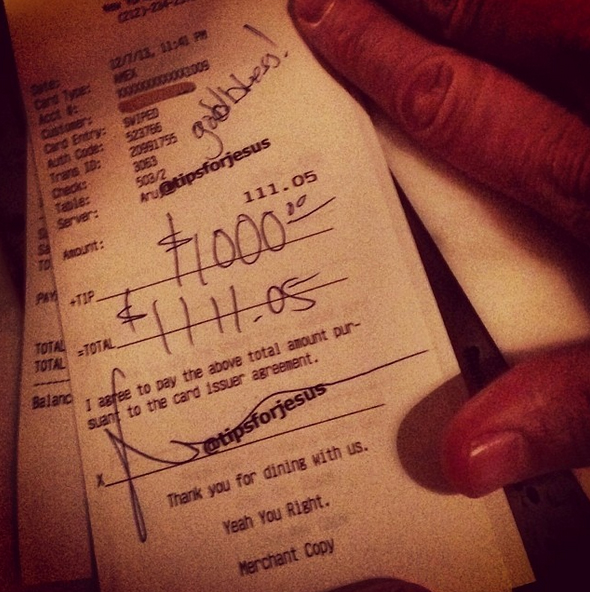 (212)-254-
Date: 12/7/13, 11:41 PM
Card Type: AMEX
Acct #: XXXXXXXXXXXX1009
Customer:
Card Entry: SWIPED
Auth Code: 523766
Trans ID: 20991755
Check: 3063
Table: 503/2
Server: Aru
god bless!
@tipsforjesus
Amount: 111.05
+TIP $1000.00
=TOTAL $1111.05
I agree to pay the above total amount pur-
suant to the card issuer agreement.
@tipsforjesus
X
Thank you for dining with us.
Yeah You Right.
Merchant Copy
TOTAL
TOTAL
Balanc